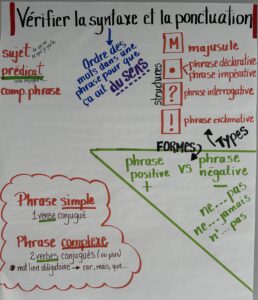 Vérifier la syntaxe et la ponctuation
sujet
prédicat
comp. phrase
Ordre des
mots dans une
phrase pour que
ça ait du sens
structures
M majusule
• phrase déclarative
phrase impérative
? phrase interrogative
! phrase exclamative
Types
FORMES
phrase
positive
+
vs
phrase
négative
-
ne...pas
ne...jamais
n'...pas
Phrase simple
1 verbe conjugué
Phrase complexe
2 verbes conjugués (ou plus)
* mot lien obligatoire → car, mais, que...